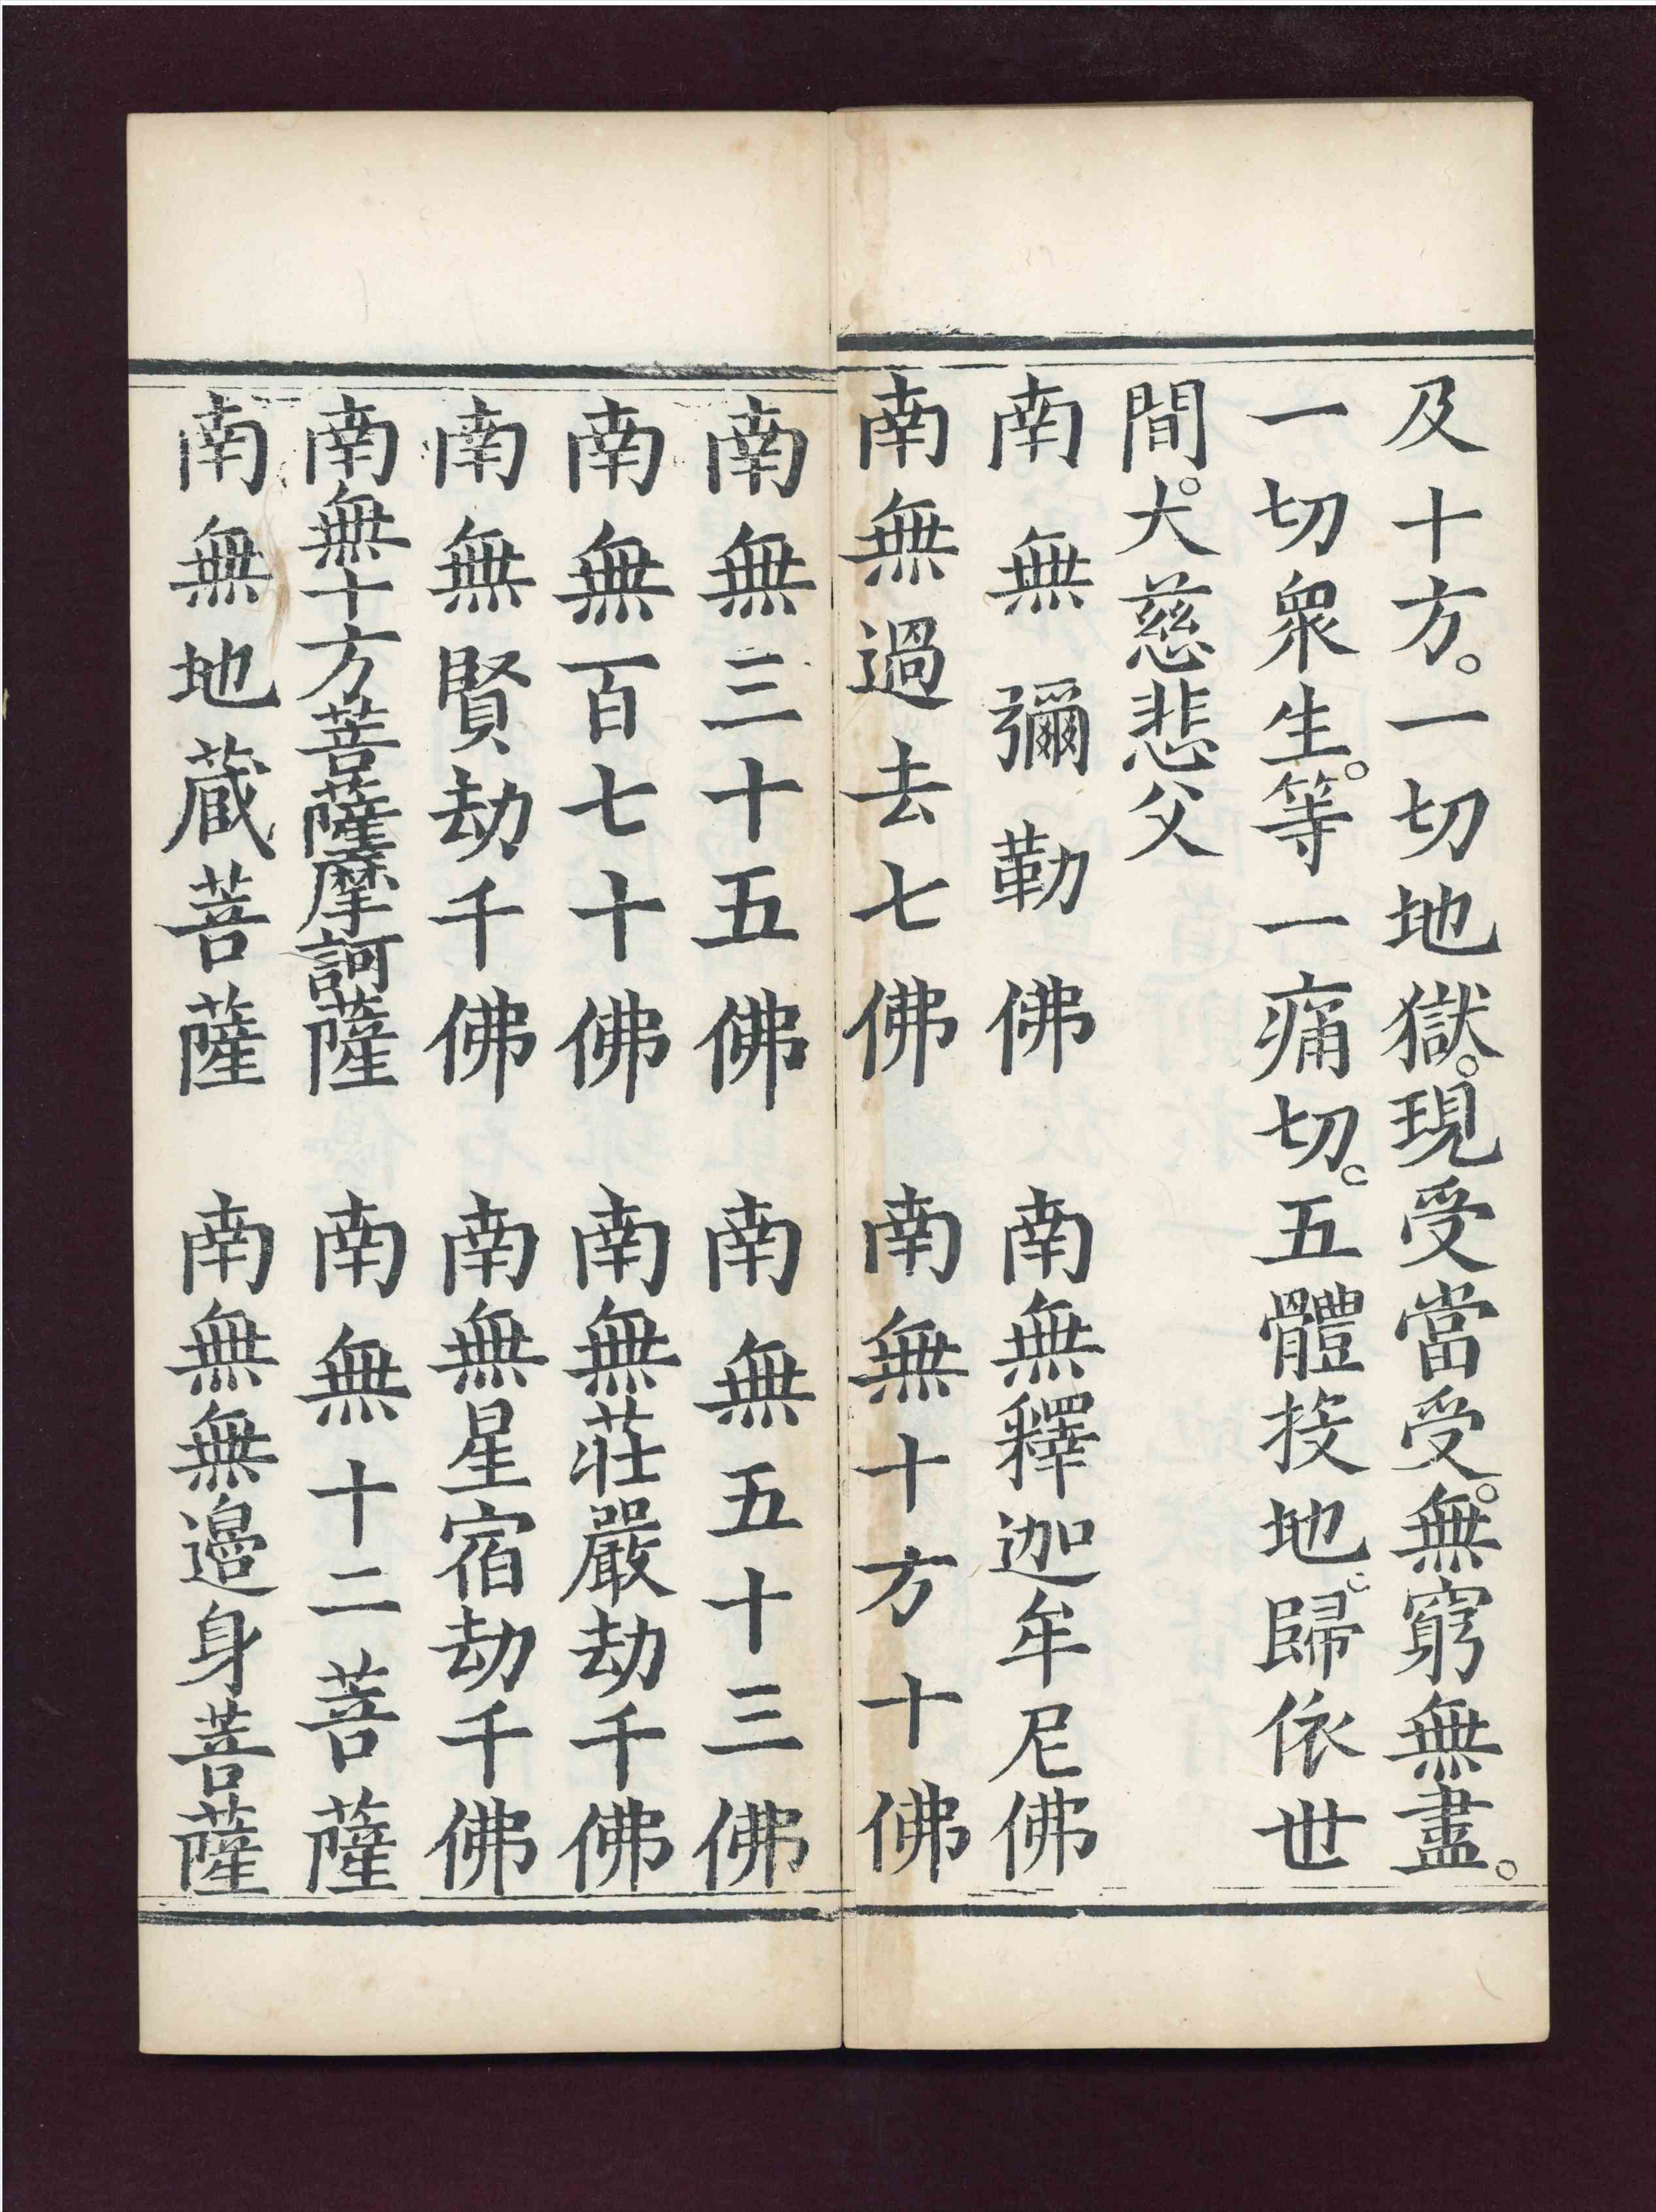 及十方。一切地獄。現受當受。無窮無盡。
一切衆生。等一痛切。五體投地。歸依世
間。大慈悲父
南無彌勒佛　南無釋迦牟尼佛
南無過去七佛　南無十方十佛
南無三十五佛　南無五十三佛
南無百七十佛　南無莊嚴劫千佛
南無賢劫千佛　南無星宿劫千佛
南無十方菩薩摩訶薩　南無十二菩薩
南無地蔵菩薩　南無無邊身菩薩